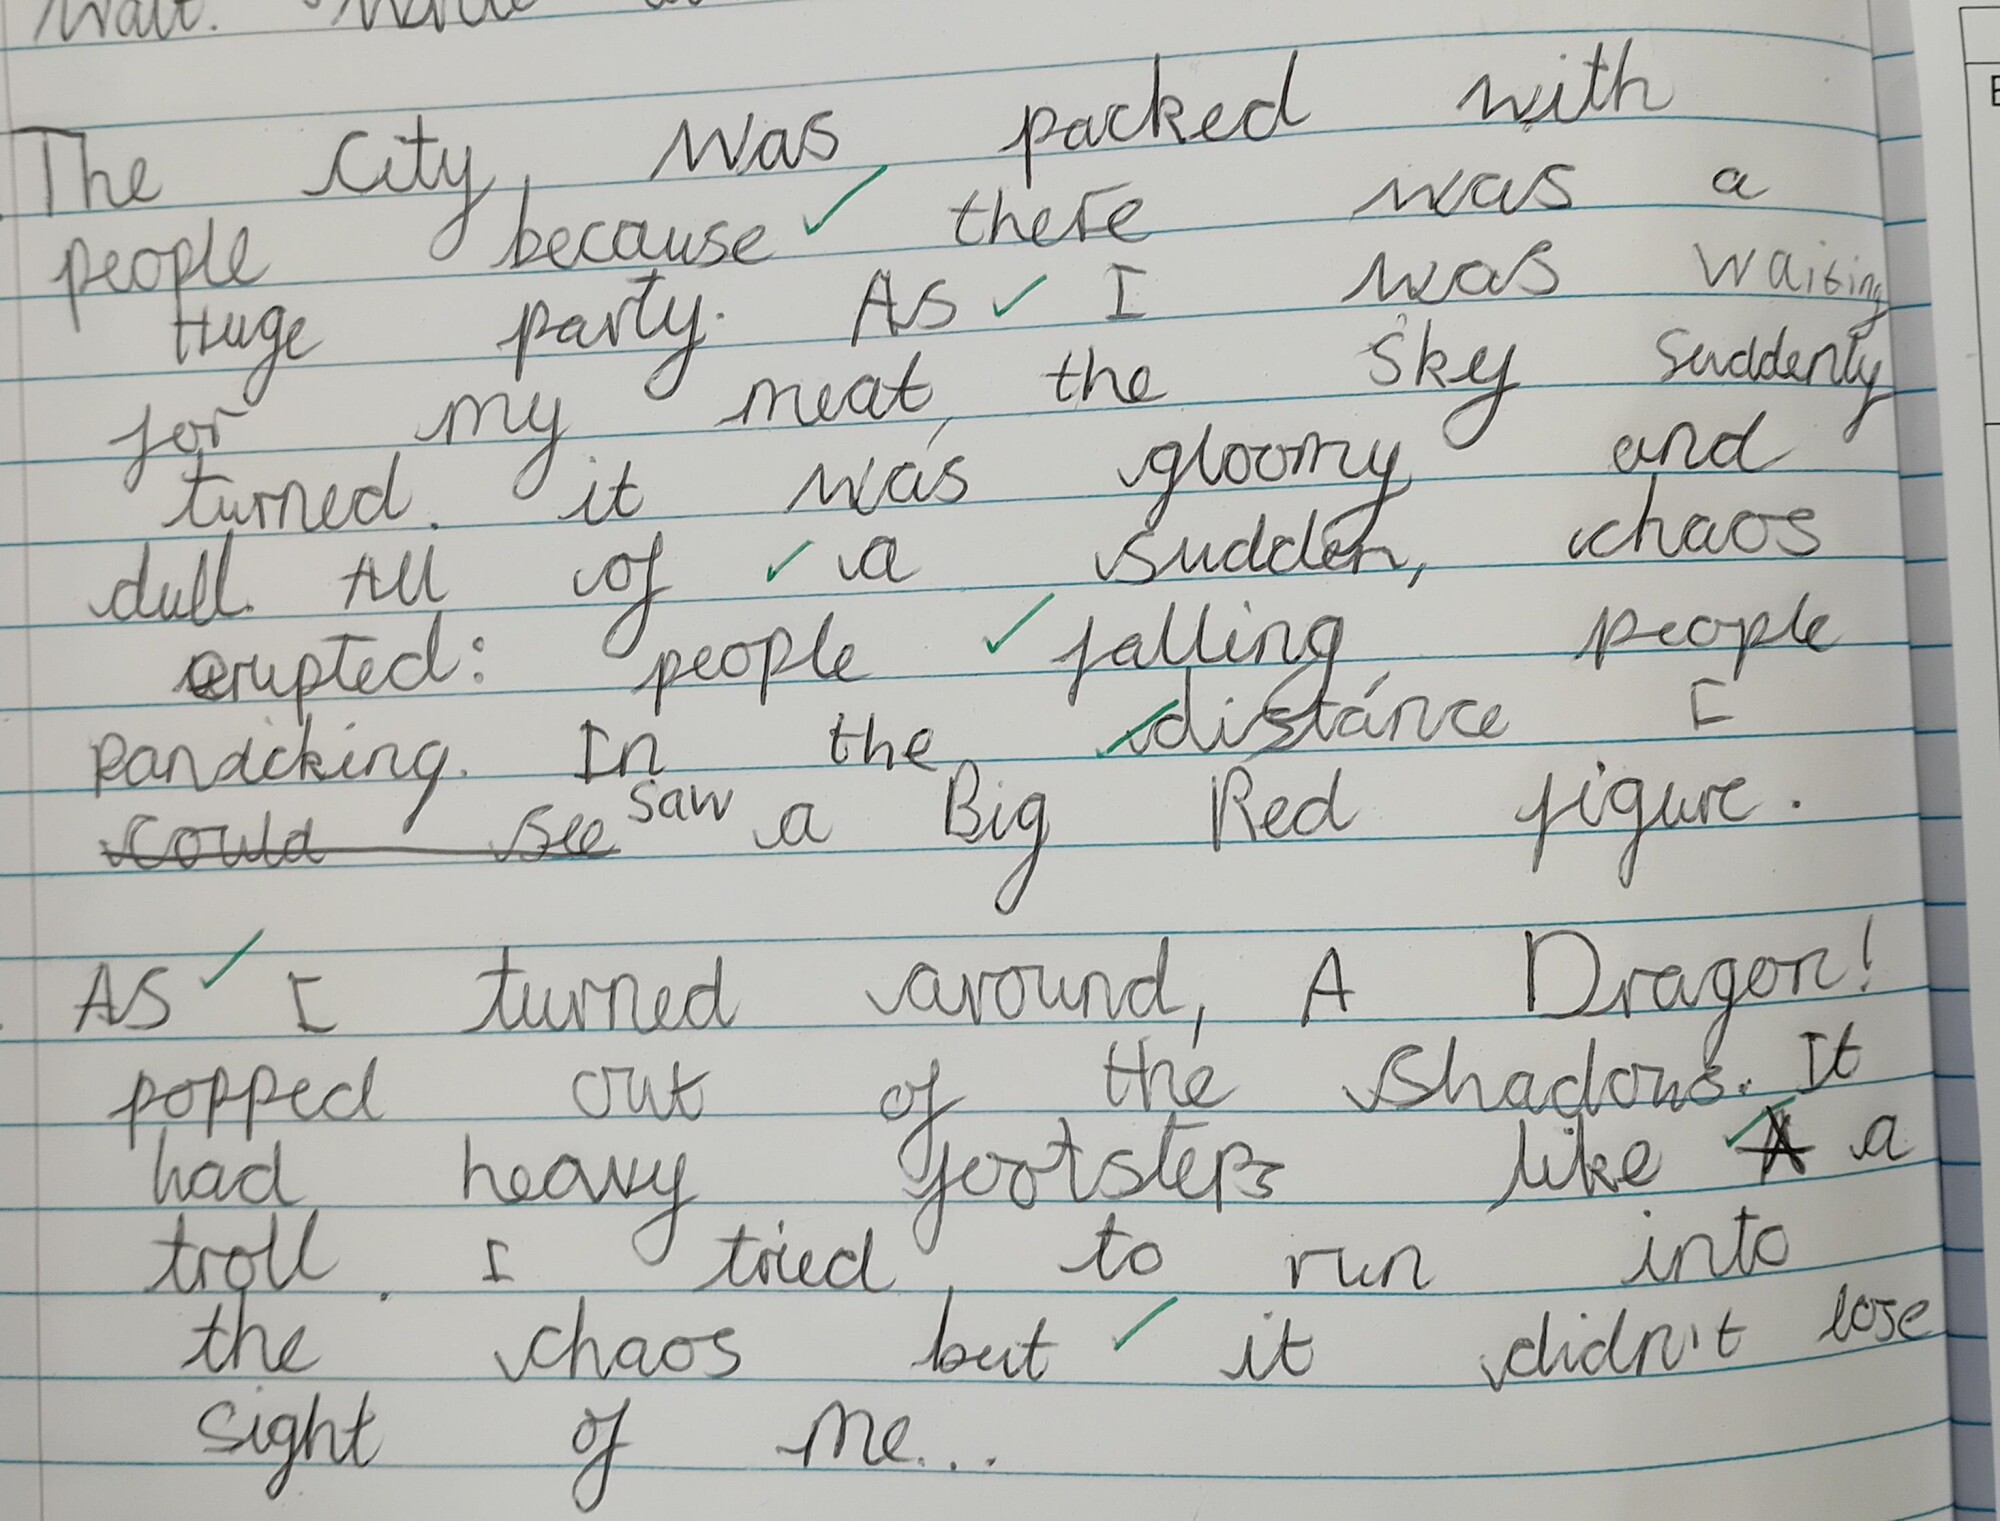 The City was packed with
people because there was a
Huge party. As I was waiting
for my meat, the sky suddenly
turned. it was gloomy and
dull. All of a sudden, chaos
erupted: people falling, people
panicking. In the distance I
could see saw a Big Red figure.
As I turned around, A Dragon!
popped out of the shadows. It
had heavy footsteps like A a
troll. I tried to run into
the chaos but it didn't lose
sight of me...